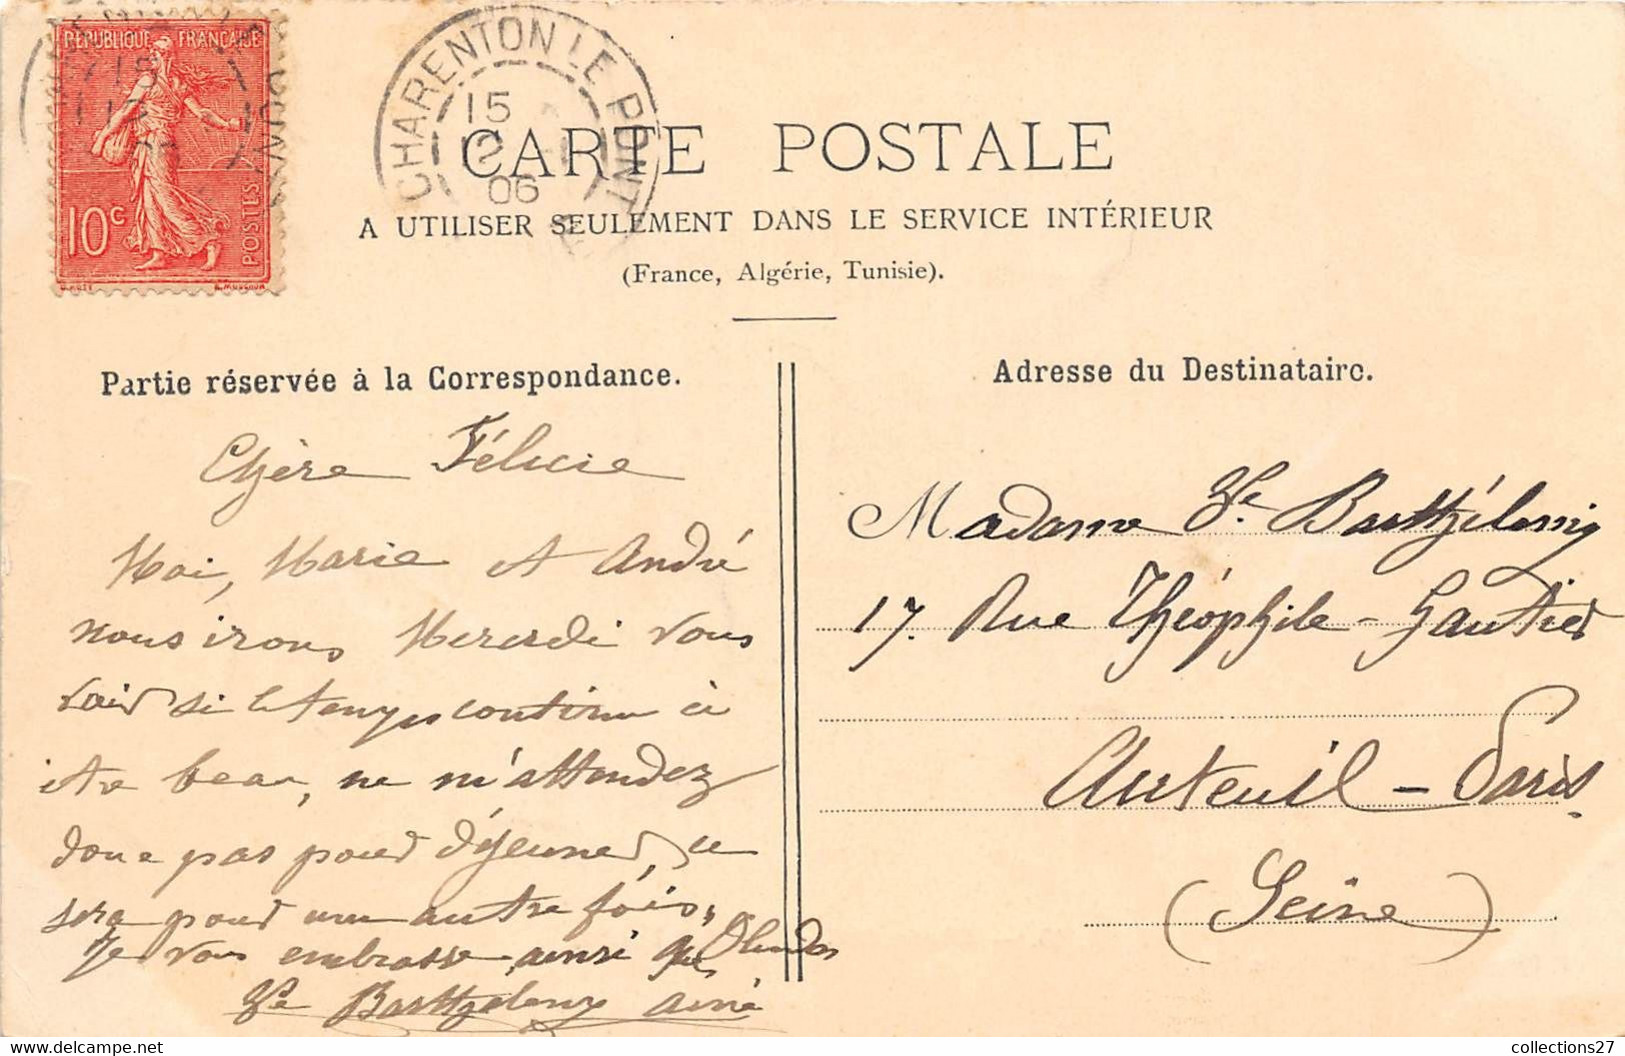 RÉPUBLIQUE FRANÇAISE
10c
POSTES
CHARENTON LE PONT
15
12
06
CARTE POSTALE
A UTILISER SEULEMENT DANS LE SERVICE INTÉRIEUR
(France, Algérie, Tunisie).
Partie réservée à la Correspondance.
Chère Félicie
Moi, Marie et André
nous irons Mercredi vous
voir si le temps continu à
etre beau, ne m'attendez
donc pas pour déjeuner, ce
sera pour une autre fois,
Je vous embrasse ainsi que
Ve Barthélemy ainé
Adresse du Destinataire.
Madame Ve. Barthélemy
17. Rue Théophile-Gautier
Auteuil - Paris.
(Seine)
collections27